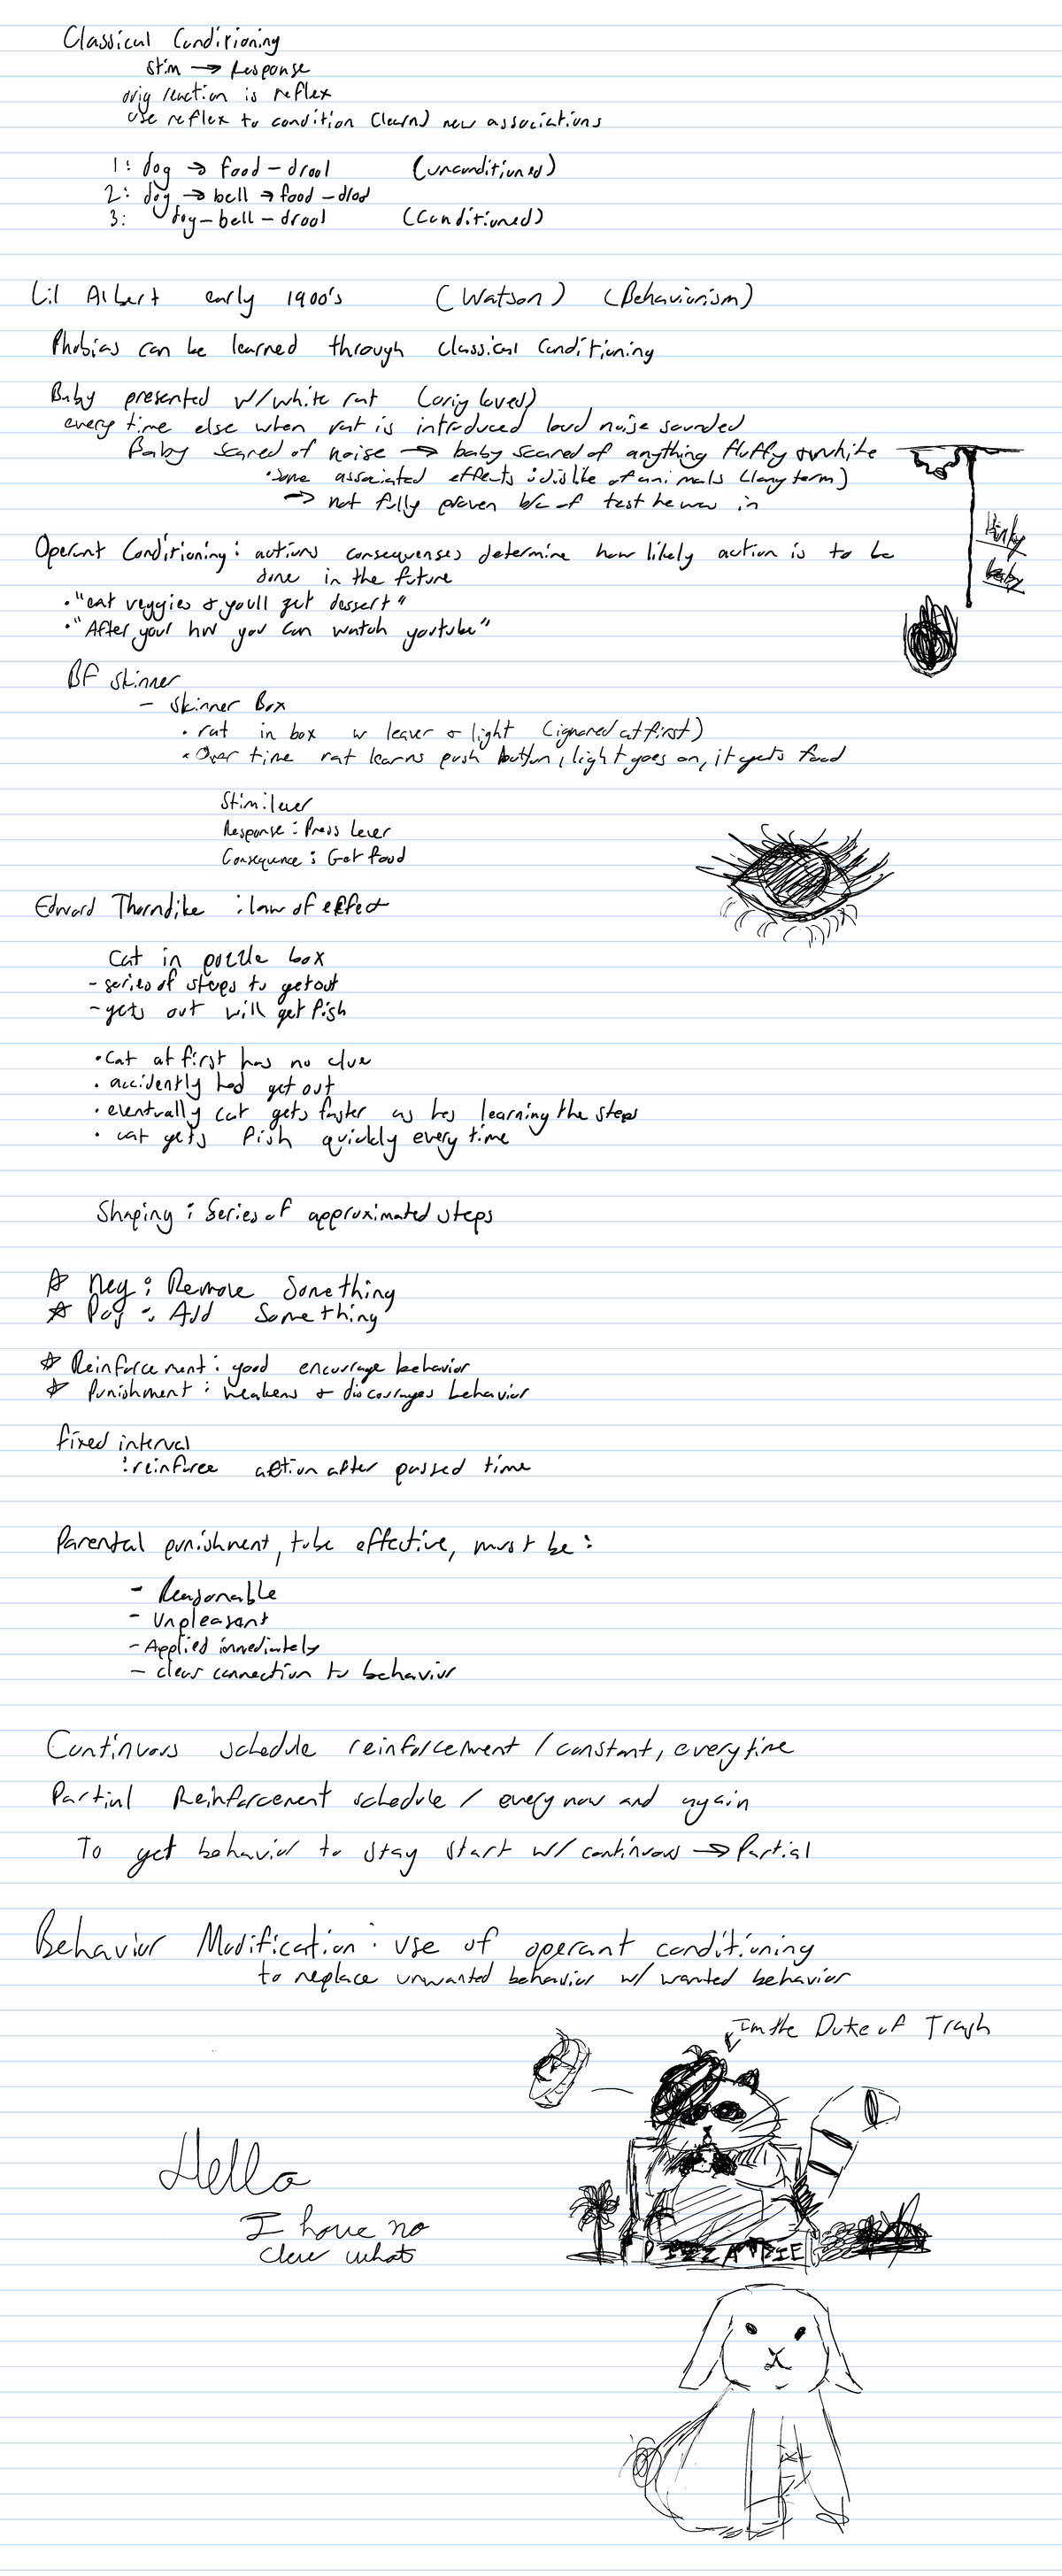 Classical Conditioning
Stim → Response
orig reaction is reflex
use reflex to condition (learn) new associations
1: dog → food - drool (unconditioned)
2: dog → bell → food - drool
3: dog - bell - drool (Conditioned)
Lil Albert early 1900's (Watson) (Behaviorism)
Phobias can be learned through classical Conditioning
Baby presented w/white rat (orig loved)
every time else when rat is introduced loud noise sounded
Baby scared of noise → baby scared of anything fluffy + white
• some associated effects: dislike of animals (long term)
→ not fully proven b/c of test he was in
Operant Conditioning: actions consequenses determine how likely action is to be
done in the future
• "eat veggies & youll get dessert"
• "After your hw you can watch youtube"
BF skinner
- skinner Box
• rat in box w leaver & light (ignored at first)
• Over time rat learns push button, light goes on, it gets food
Stim: lever
Response: Press Lever
Consequence: Get food
Edward Thorndike: law of effect
Cat in puzzle box
- series of steps to get out
- gets out will get fish
• Cat at first has no clue
• accidently had get out
• eventually cat gets faster as hes learning the steps
• cat gets fish quickly every time
Shaping: Series of approximated steps
☆ Neg: Remove Something
☆ Pos: Add Something
☆ Reinforcement: good encourage behavior
☆ Punishment: weakens & discourages behavior
fixed interval
: reinforce action after passed time
Parental punishment, to be effective, must be:
- Reasonable
- Unpleasant
- Applied immediately
- clear connection to behavior
Continuous schedule reinforcement / constant, everytime
Partial Reinforcement schedule / every now and again
To get behavior to stay start w/ continuous → Partial
Behavior Modification: use of operant conditioning
to replace unwanted behavior w/ wanted behavior
Im the Duke of Trash
Hello
I have no
clew what